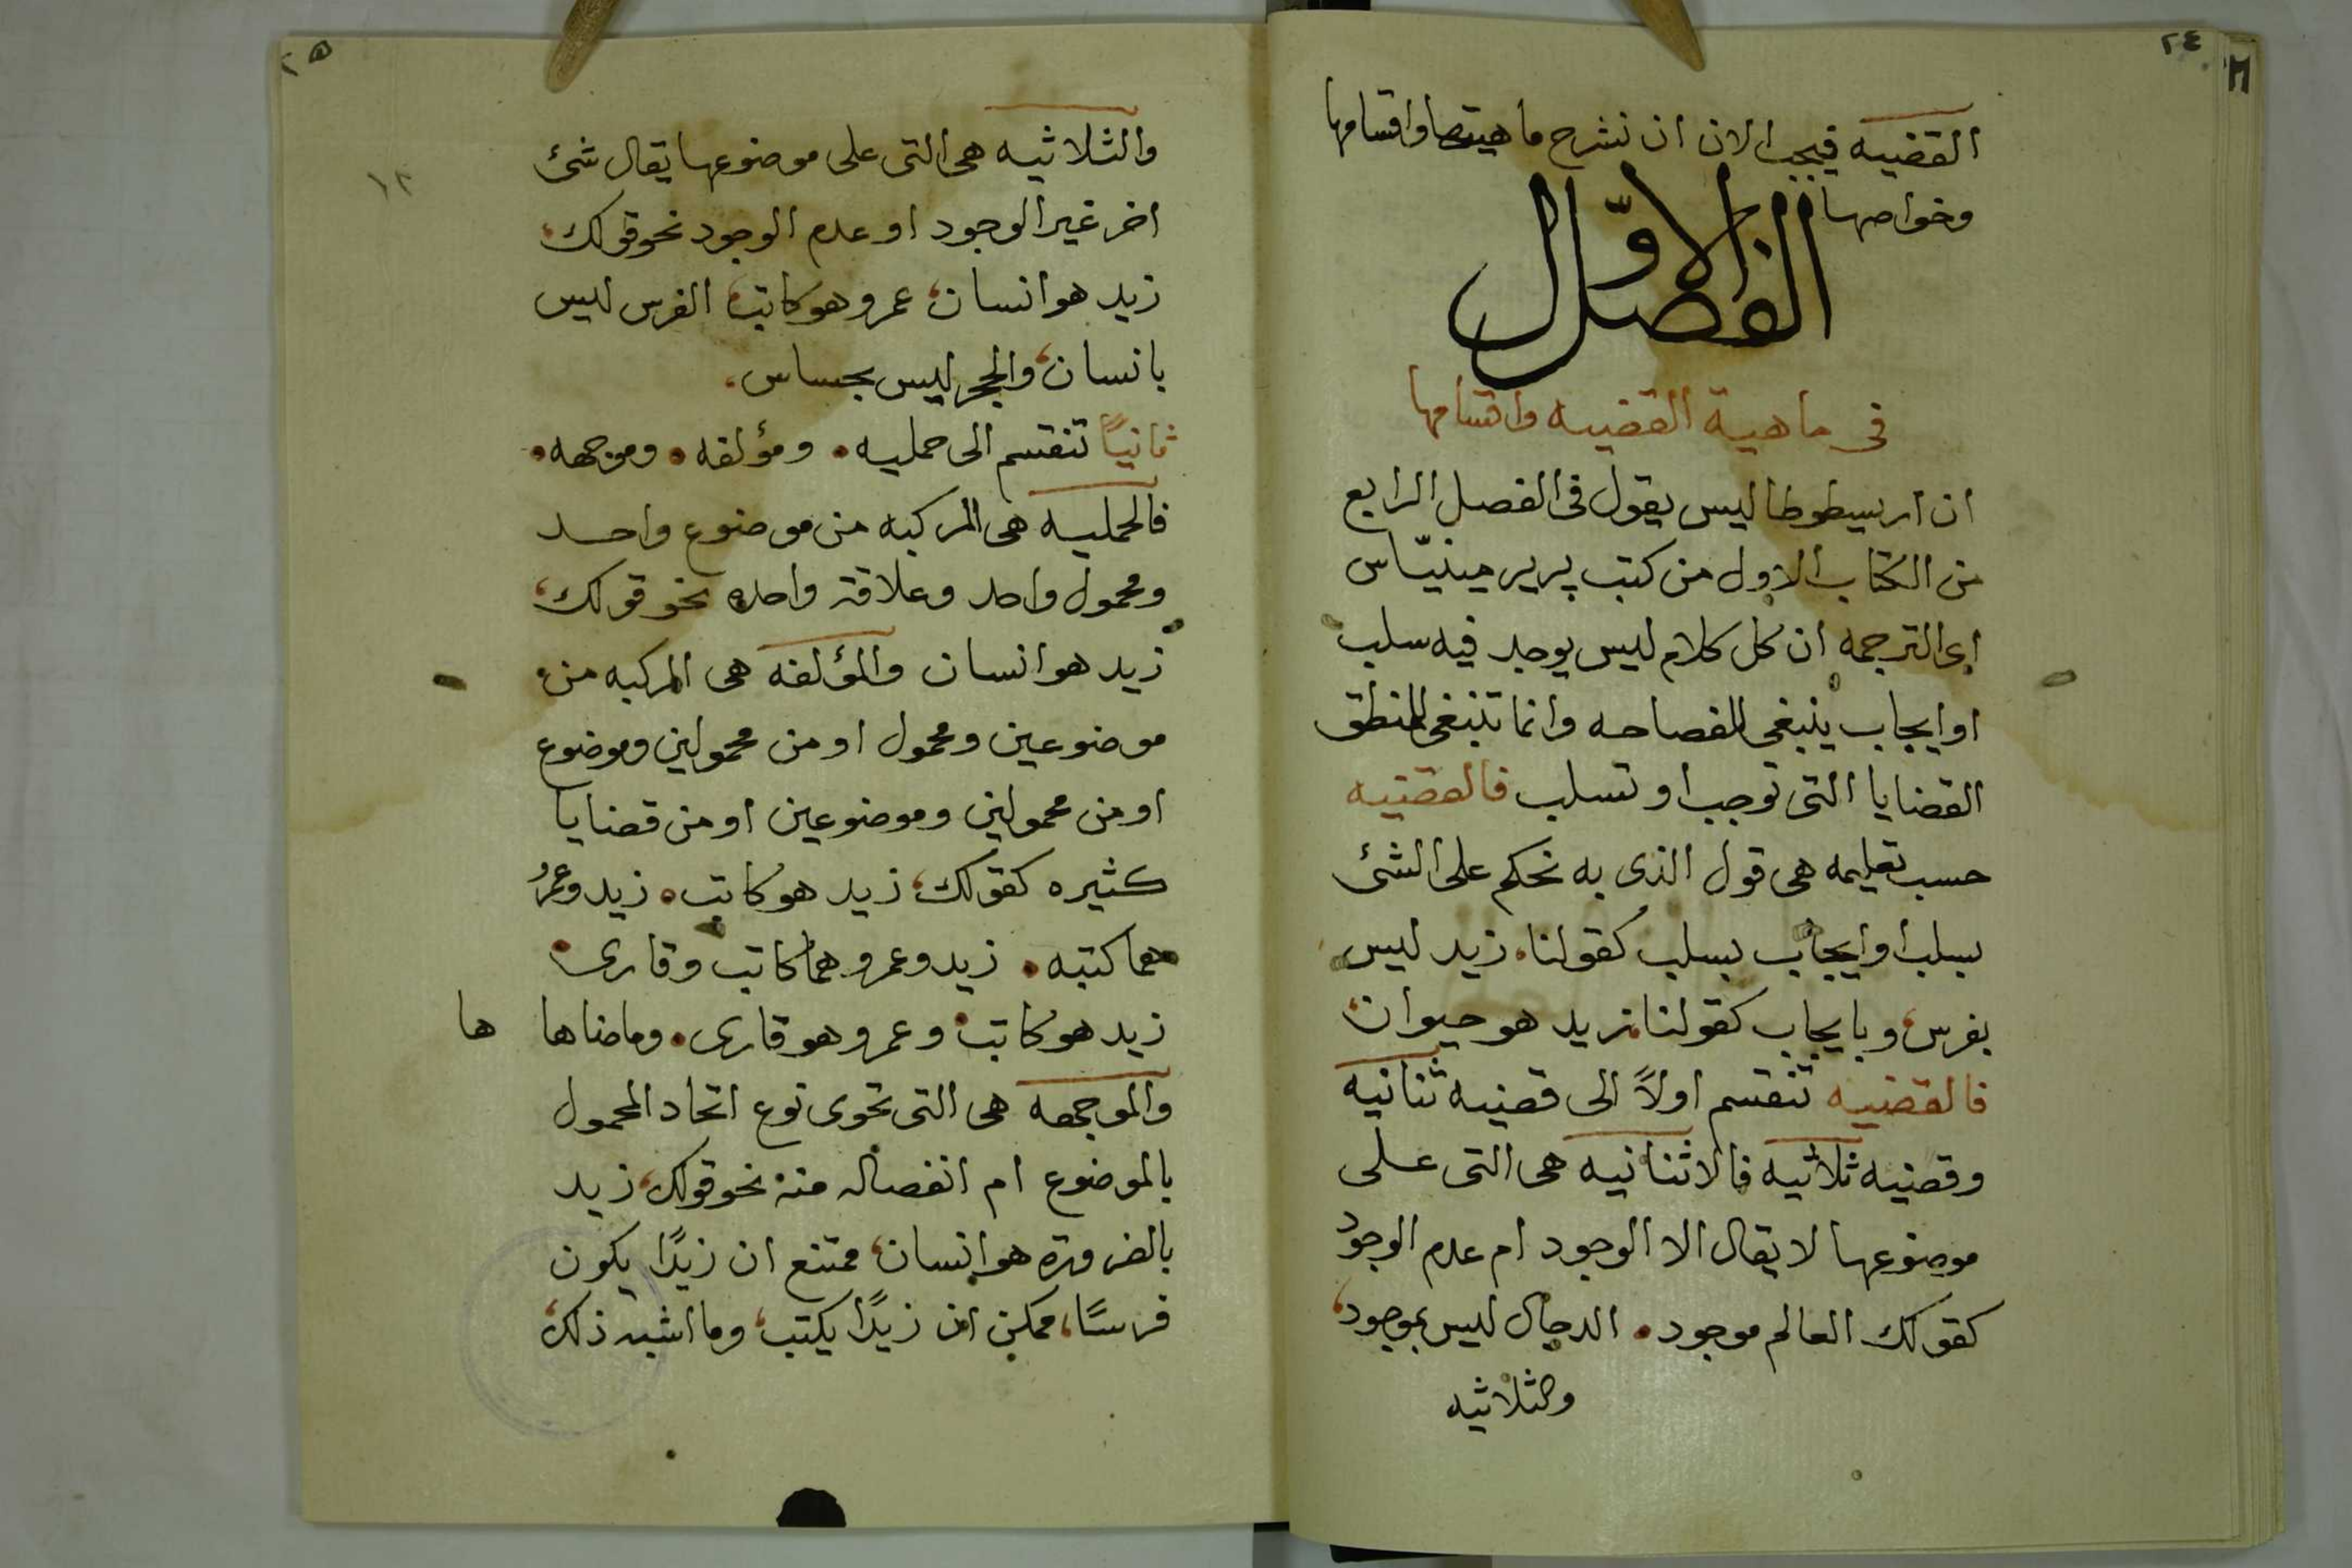 ٢٤
القضيه فيجب الان ان نشرح ماهيتها واقسامها
وخواصها
الفصل الاوّل
فى ماهية القضيه واقسامها
ان اريسطوطاليس يقول فى الفصل الرابع
من الكتاب الاول من كتب پريرمينيّاس
اى الترجمه ان كل كلام ليس يوجد فيه سلب
او ايجاب ينبغى للفصاحه وانما تنبغى للمنطق
القضايا التى توجب او تسلب فالقضيه
حسب تعليمه هى قول الذى به نحكم على الشئ
بسلب او ايجاب بسلب كقولنا، زيد ليس
بفرس، وبايجاب كقولنا، زيد هو حيوان،
فالقضيه تنقسم اولاً الى قضيه ثنانيه
وقضيه ثلاثيه فالاثنانيه هى التى على
موضوعها لا يقال الا الوجود ام عدم الوجود
كقولك العالم موجود. الدجال ليس بموجود،
والثلاثيه
٢٥
والثلاثيه هى التى على موضوعها يقال شئ
اخر غير الوجود او عدم الوجود نحو قولك،
زيد هو انسان، عمرو هو كاتب، الفرس ليس
بانسان، والحجر ليس بحساس،
ثانيًا تنقسم الى حمليه. ومؤلفه. وموجهه.
فالحمليه هى المركبه من موضوع واحد
ومحمول واحد وعلاقة واحده نحو قولك،
زيد هو انسان والمؤلفه هى المركبه من
موضوعين ومحمول او من محمولين وموضوع
او من محمولين وموضوعين او من قضايا
كثيره كقولك، زيد هو كاتب. زيد وعمرُ
هما كتبه. زيد وعمرو هما كاتب وقارى.
زيد هو كاتب. وعمرو هو قارى. وماضاها ها
والموجهه هى التى تحوى نوع اتحاد المحمول
بالموضوع ام انفصاله منه نحو قولك، زيد
بالضروره هو انسان، ممتنع ان زيدًا يكون
فرسًا، ممكن ان زيدًا يكتب، وما اشبه ذلك،